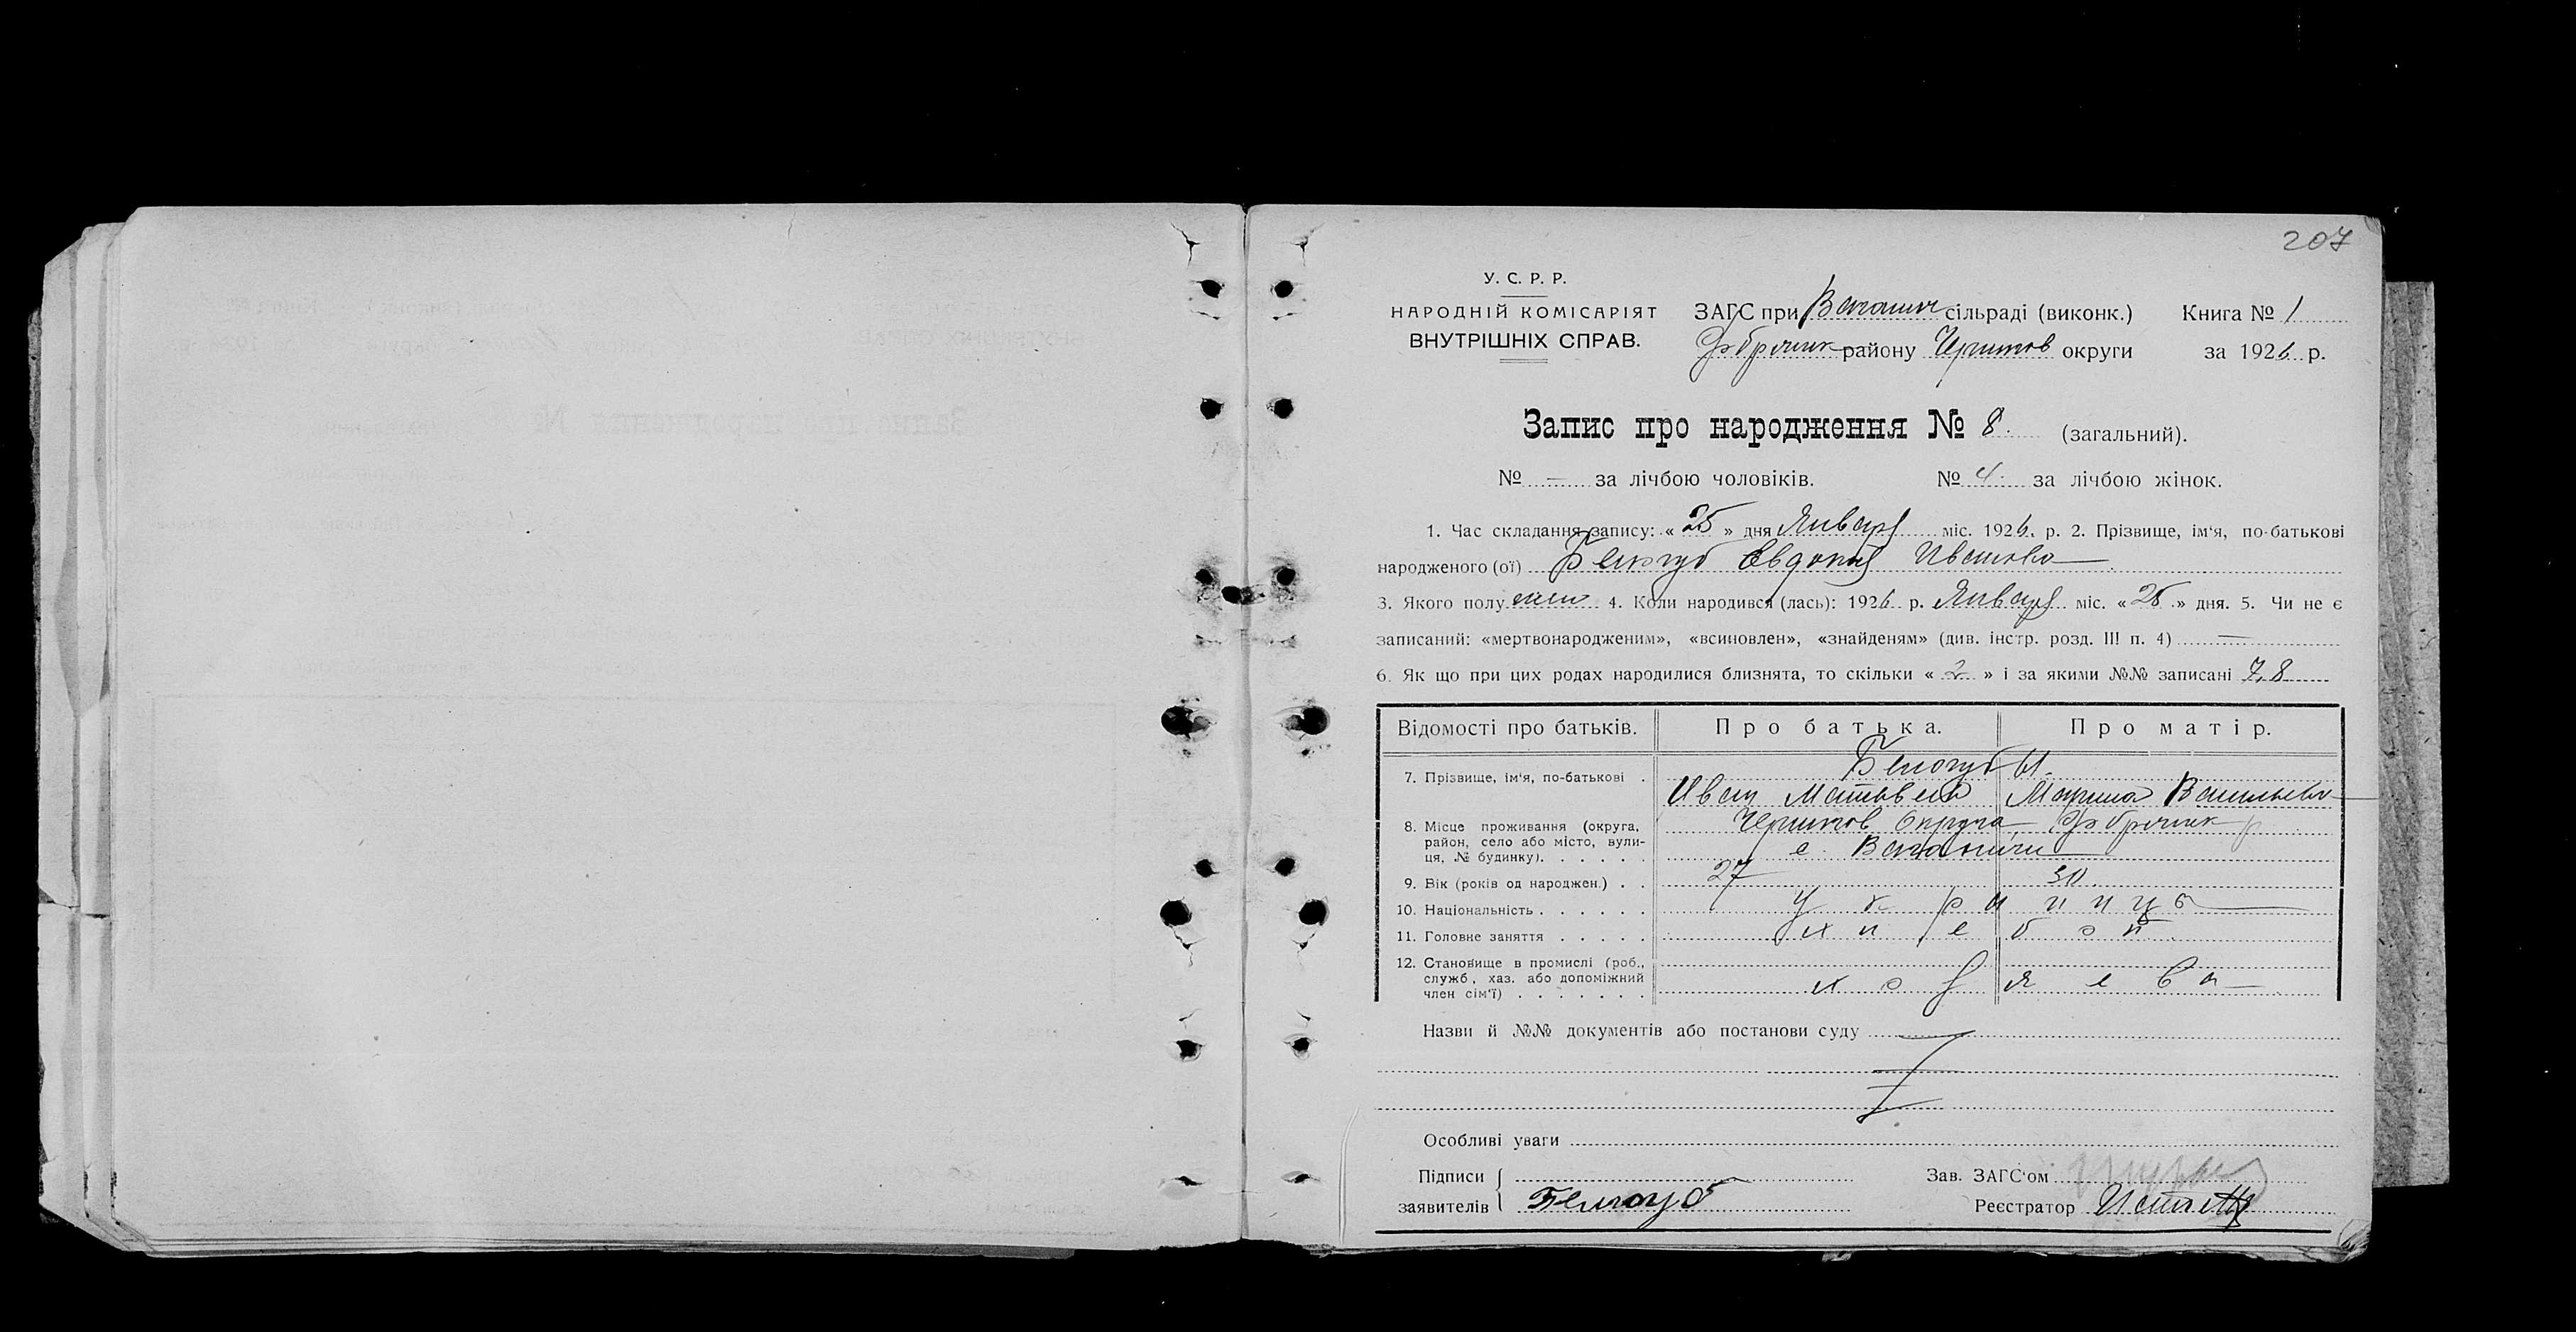 207
У. С. Р. Р.
НАРОДНІЙ КОМІСАРІЯТ
ВНУТРІШНІХ СПРАВ.
ЗАГС при Ваганич сільраді (виконк.) Книга № 1
району Чернигов округи за 1926 р.
Запис про народження № 8. (загальний).
№ — за лічбою чоловіків. № 4. за лічбою жінок.
1. Час складання запису: « 25 » дня Января міс. 1926. р. 2. Прізвище, ім'я, по-батькові
народженого (ої) Белогуб Евдокия Иванова
3. Якого полу жен 4. Коли народився (лась): 1926 р. Января міс. « 25 » дня. 5. Чи не є
записаний: «мертвонародженим», «всиновлен», «знайденям» (див. інстр. розд. III п. 4) —
6. Як що при цих родах народилися близнята, то скільки « 2 » і за якими №№ записані 7, 8
Відомості про батьків. Про батька. Про матір.
7. Прізвище, ім'я, по-батькові . Белогубы.
Иван Матвеев Марина Васильева
8. Місце проживання (округа, район, село або місто, вулиця, № будинку). . . . . . Чернигов округа,
с. Ваганичи
9. Вік (років од народжен.) . . 27 30.
10. Національність . . . . . . украинцы
11. Головне заняття . . . . . хлебоп.
12. Становище в промислі (роб.,
служб, хаз. або допоміжний
член сім'ї) . . . . . . . хозяева
Назви й №№ документів або постанови суду
Особливі уваги
Підписи
заявителів Белогуб
Зав. ЗАГС'ом
Реєстратор